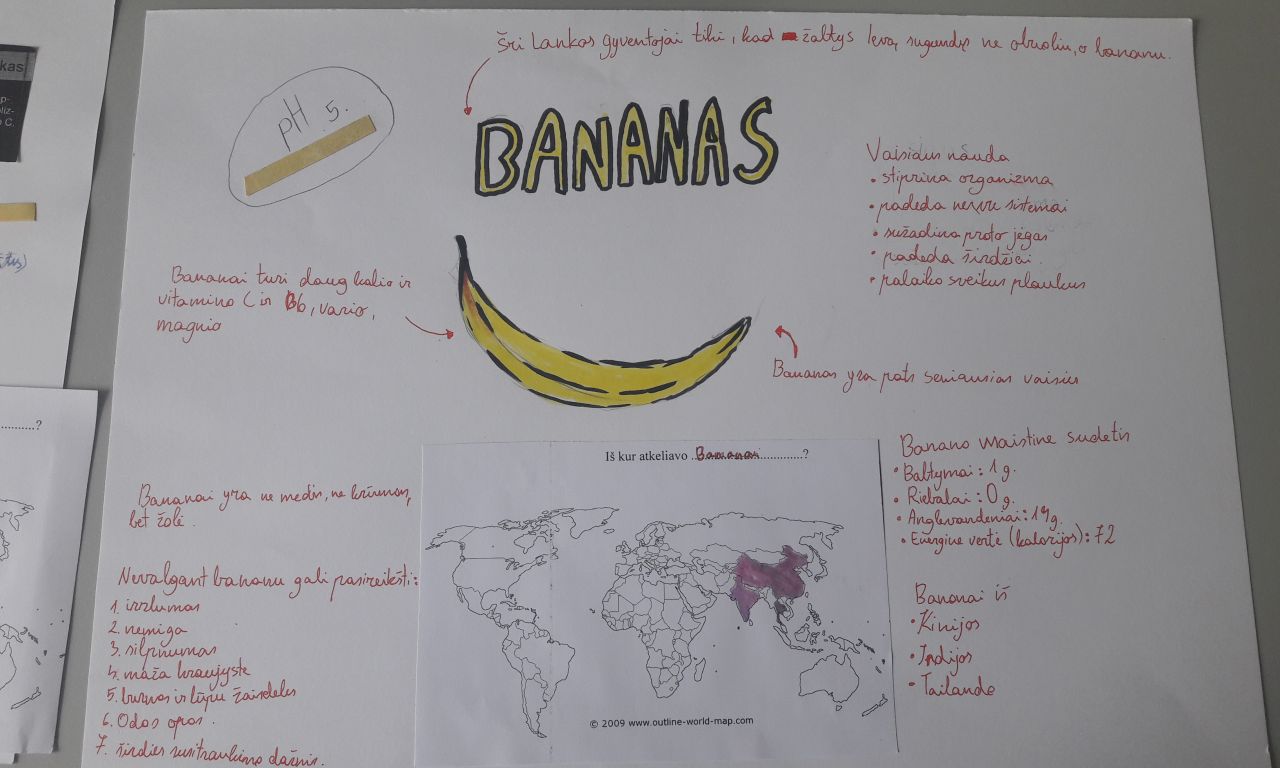 Šri Lankos gyventojai tiki, kad žaltys Ievą sugundęs ne obuoliu, o bananu.
pH 5.
BANANAS
Vaisiaus nauda
• stiprina organizmą
• padeda nervų sistemai
• sužadina proto jėgas
• padeda širdžiai.
• palaiko sveikus plaukus
Bananai turi daug kalio ir
vitamino C ir B6, vario,
magnio
Bananas yra pats seniausias vaisius
Bananai yra ne medis, ne krūmas,
bet žolė.
Nevalgant bananų gali pasireikšti:
1. irzlumas
2. nemiga
3. silpnumas
4. maža kraujystė
5. burnos ir lūpų žaizdelės
6. Odos opos.
7. širdies susitraukimo dažnis.
Iš kur atkeliavo ..Bananas..............?
© 2009 www.outline-world-map.com
Banano maistinė sudėtis
• Baltymai: 1 g.
• Riebalai: 0 g.
• Angliavandeniai: 19 g.
• Energinė vertė (kalorijos): 72
Bananai iš
• Kinijos
• Indijos
• Tailando
kas
C.
..........?